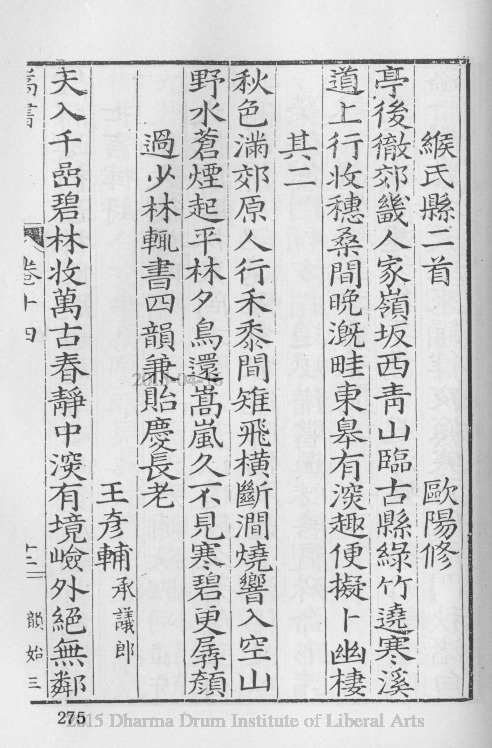 緱氏縣二首　歐陽修
亭後徹郊畿人家嶺坂西靑山臨古縣綠竹遶寒溪
道上行收穗桑間晚漑畦東皋有深趣便擬卜幽棲
其二
秋色滿郊原人行禾黍間雉飛橫斷澗燒響入空山
野水蒼煙起平林夕鳥還嵩嵐久不見寒碧更孱顏
過少林輒書四韻兼貽慶長老
王彥輔承議郎
天入千嵒碧林收萬古春靜中深有境嶮外絕無鄰
嵩書　卷十四　十二　韻始三
275
2015 Dharma Drum Institute of Liberal Arts